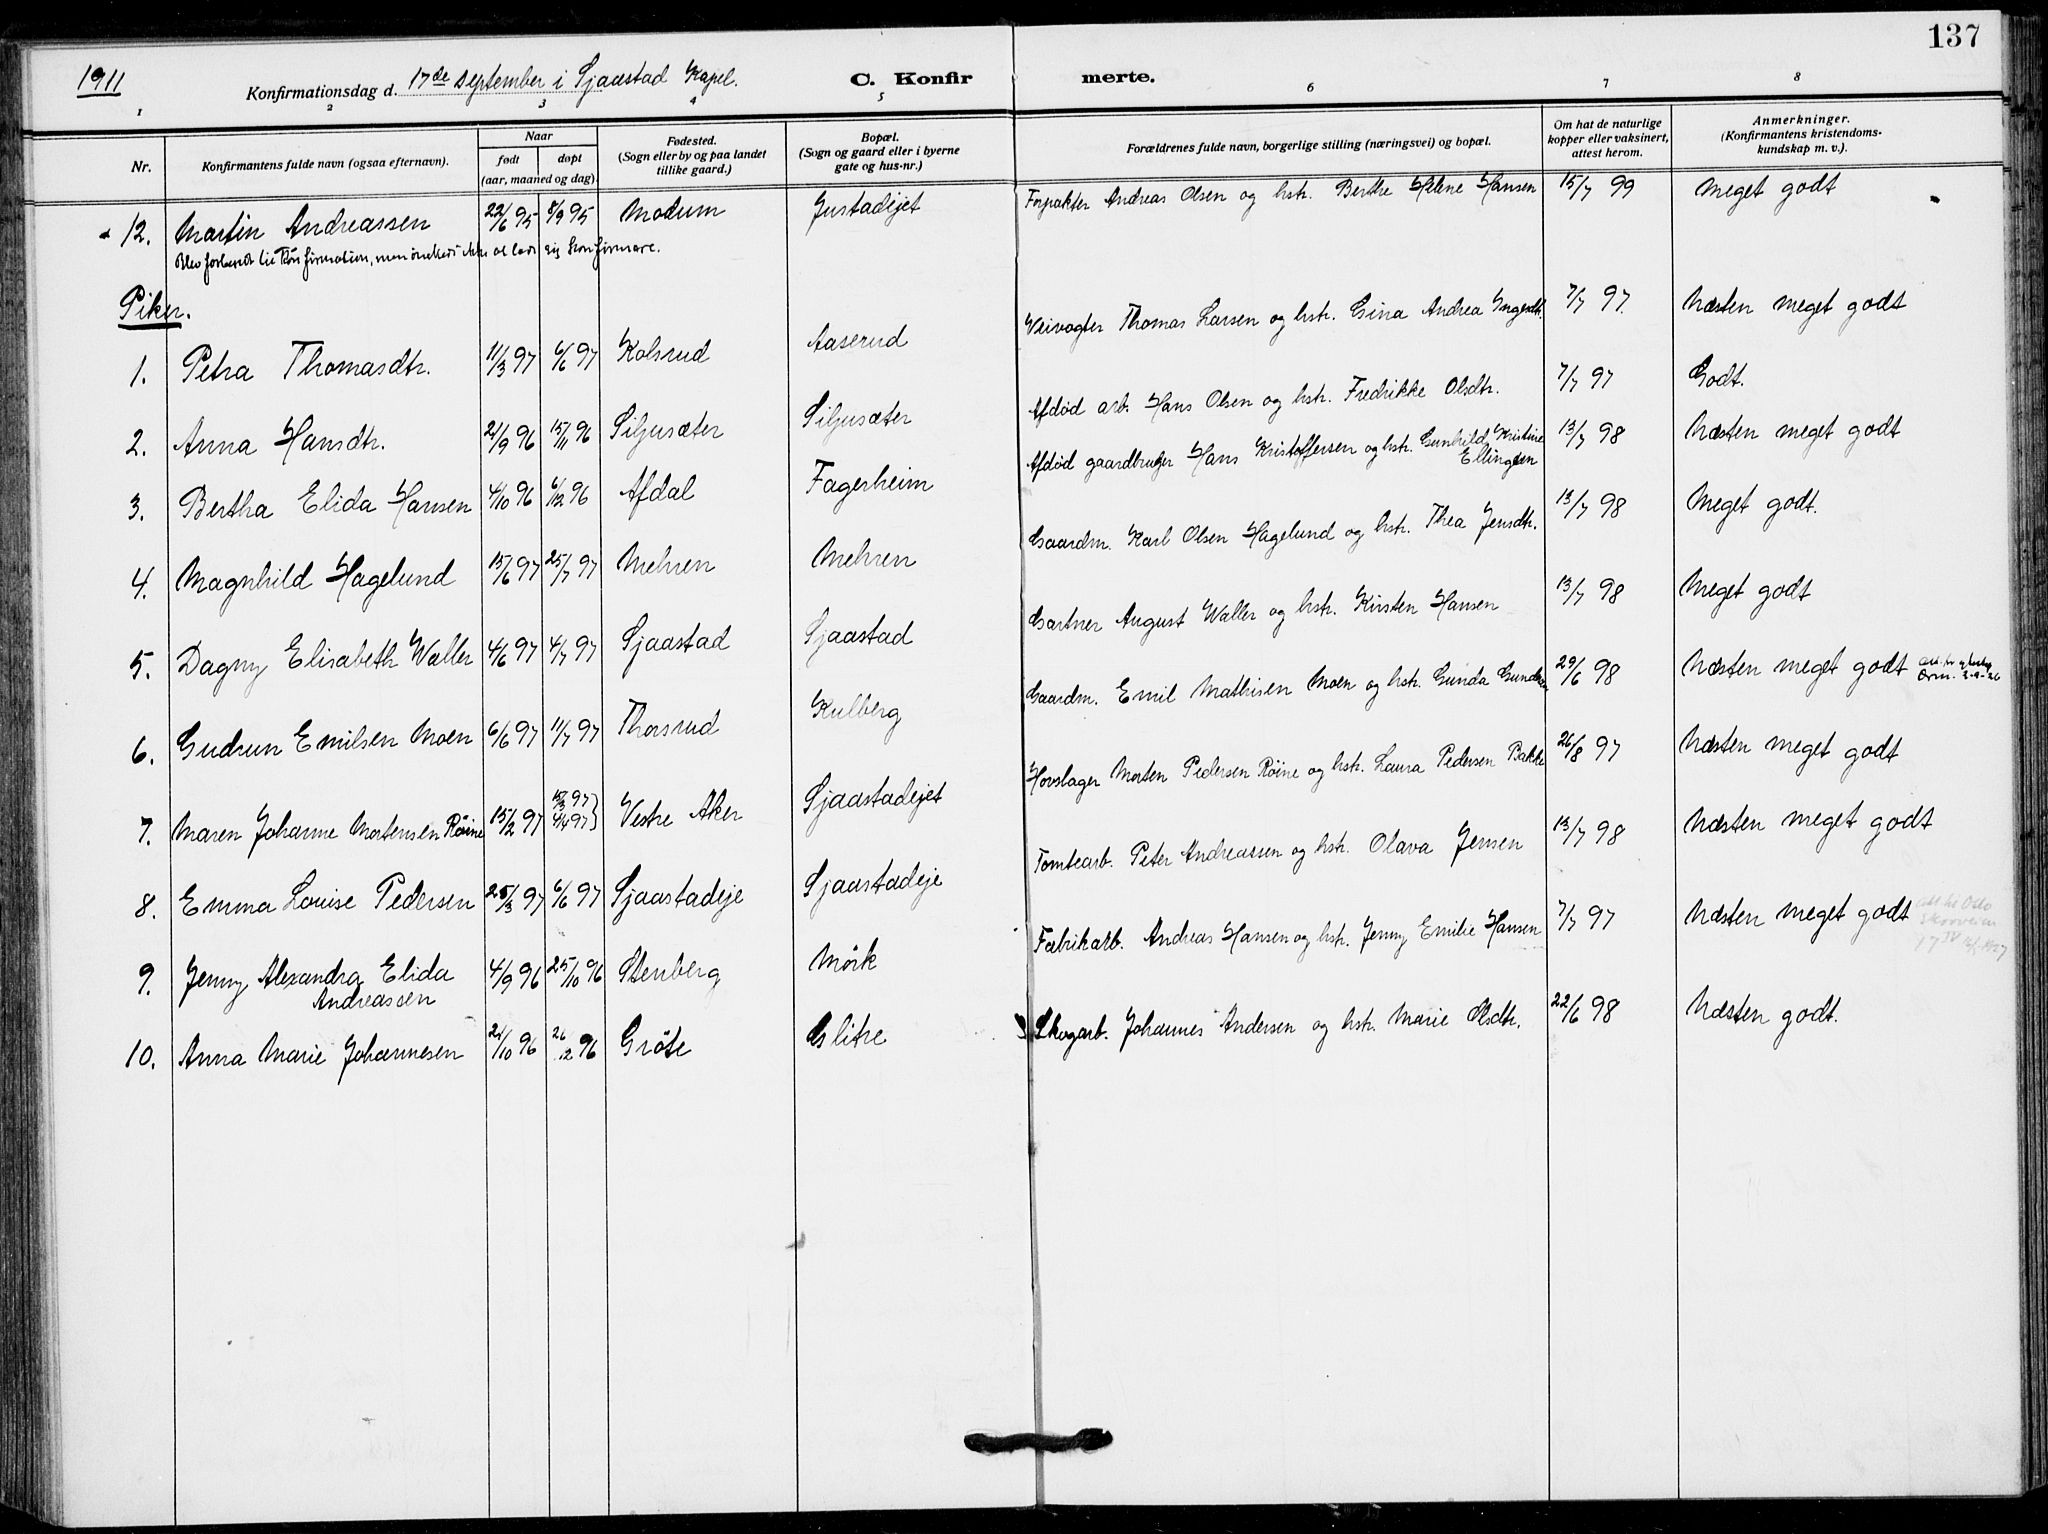 137
1911 Konfirmationsdag d. 17de september i Sjaastad Kapel. C. Konfirmerte.
1 2 3 4 5 6 7 8
Nr. Konfirmantens fulde navn (ogsaa efternavn). Naar født døpt (aar, maaned og dag) Fødested. (Sogn eller by og paa landet tillike gaard.) Bopæl. (Sogn og gaard eller i byerne gate og hus-nr.) Forældrenes fulde navn, borgerlige stilling (næringsvei) og bopæl. Om hat de naturlige kopper eller vaksinert, attest herom. Anmerkninger. (Konfirmantens kristendomskundskap m. v.).
12. Martin Andreassen 22/6 95 8/9 95 Modum Justadejet Forpakter Andreas Olsen og hstr. Berthe Helene Hansen 15/7 99 Meget godt
Blev forberedt til Konfirmation, men ønskede ikke at lade sig konfirmere.
Piker.
1. Petra Thomasdtr. 11/3 97 6/6 97 Kolsrud Aaserud Veivogter Thomas Larsen og hstr. Gina Andrea 7/7 97. Næsten meget godt
2. Anna Hansdtr. 21/9 96 15/11 96 Siljusæter Siljusæter Afdød arb. Hans Olsen og hstr. Fredrikke Olsdtr. 7/7 97 Godt.
3. Bertha Elida Hansen 4/10 96 6/12 96 Afdal Fagerheim Afdød gaardbruger Hans Kristoffersen og hstr. Gunhild Kristine Ellingsen 13/7 98 Næsten meget godt
4. Magnhild Hagelund 15/6 97 25/7 97 Mehren Mehren Gaardm. Karl Olsen Hagelund og hstr. Thea Jensdtr. 13/7 98 Meget godt.
5. Dagny Elisabeth Waller 4/6 97 4/7 97 Sjaastad Sjaastad Gartner August Waller og hstr. Kirsten Hansen 13/7 98 Meget godt
6. Gudrun Emilsen Moen 6/6 97 11/7 97 Thorsrud Kulberg Gaardm. Emil Mathisen Moen og hstr. Gunda Gundersen 29/6 98 Næsten meget godt
7. Maren Johanne Mortensen Röine 15/2 97 15/3 97 4/4 97} Vestre Aker Sjaastadejet Hovslager Morten Pedersen Röine og hstr. Laura Pedersen Bakke 26/8 97 Næsten meget godt
8. Emma Louise Pedersen 25/3 97 6/6 97 Sjaastadeje Sjaastadeje Tomtearb. Peter Andreassen og hstr. Olava Jensen 13/7 98 Næsten meget godt
9. Jenny Alexandra Elida Andreassen 4/9 96 25/10 96 Stenberg Mörk Fabrikarb. Andreas Hansen og hstr. Jenny Emilie Hansen 7/7 97 Næsten meget godt
10. Anna Marie Johannesen 21/10 96 26/12 96 Gröte Glitre Skogarb. Johannes Andersen og hstr. Marie Olsdtr. 22/6 98 Næsten godt.